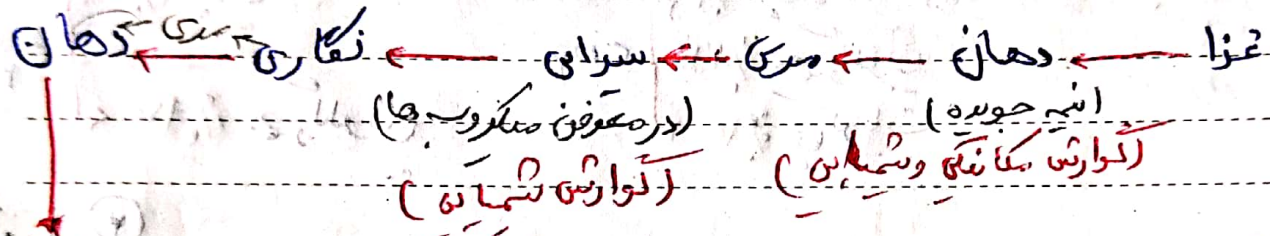 غذا ← دهان ← مری ← سیرابی ← نگاری ← مری ← دهان
(نیمه جویده) (در معرض میکروب ها)
(گوارش مکانیکی وشیمیایی) (گوارش شیمیایی)